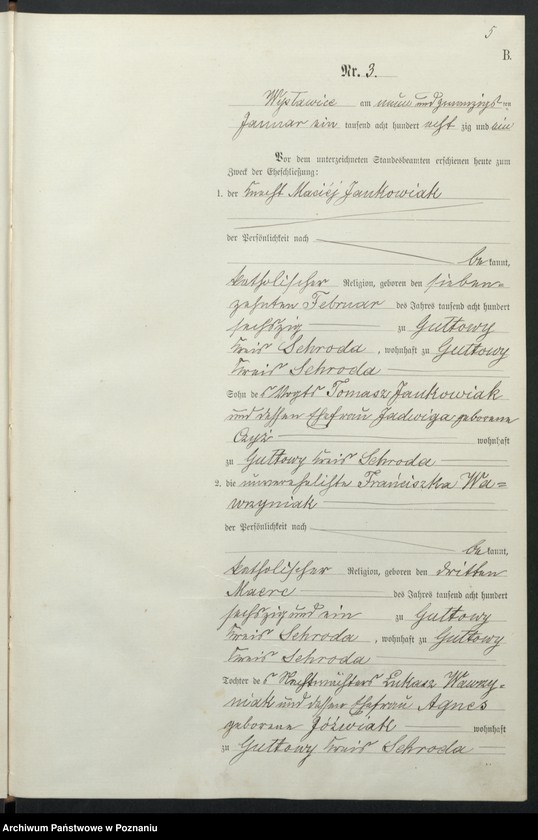 5
B.
Nr. 3.
Wysławice am neun und zwanzigsten
Januar ein tausend acht hundert acht zig und ein
Vor dem unterzeichneten Standesbeamten erschienen heute zum
Zweck der Eheschließung:
1. der Knecht Maciej Jankowiak
der Persönlichkeit nach
be kannt,
katholischer Religion, geboren den sieben=
zehnten Februar des Jahres tausend acht hundert
sechszig zu Gultowy
Kreis Schroda, wohnhaft zu Gultowy
Kreis Schroda
Sohn des Vogts Tomasz Jankowiak
und dessen Ehefrau Jadwiga geborene
wohnhaft
zu Gultowy Kreis Schroda
2. die unverehelichte Franciszka Wa=
wrzyniak
der Persönlichkeit nach
be kannt,
katholischer Religion, geboren den dritten
Maerz des Jahres tausend acht hundert
sechszig und ein zu Gultowy
Kreis Schroda, wohnhaft zu Gultowy
Kreis Schroda
Tochter des Nachtwächters Lukasz Wawrzy=
niak und dessen Ehefrau Agnes
geborene Jóźwiak wohnhaft
zu Gultowy Kreis Schroda
Archiwum Państwowe w Poznaniu